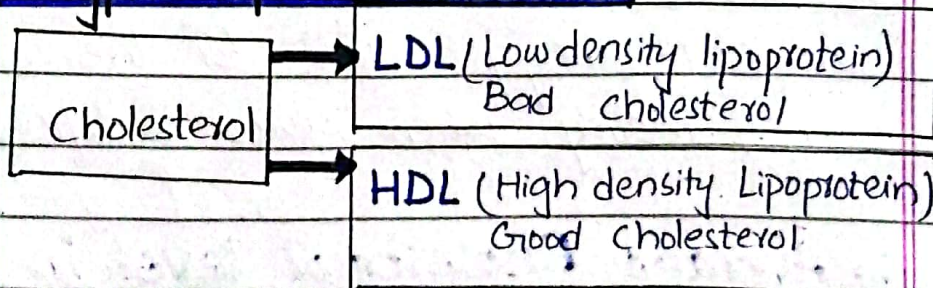 Cholesterol
LDL (Low density lipoprotein)
Bad Cholesterol
HDL (High density Lipoprotein)
Good Cholesterol